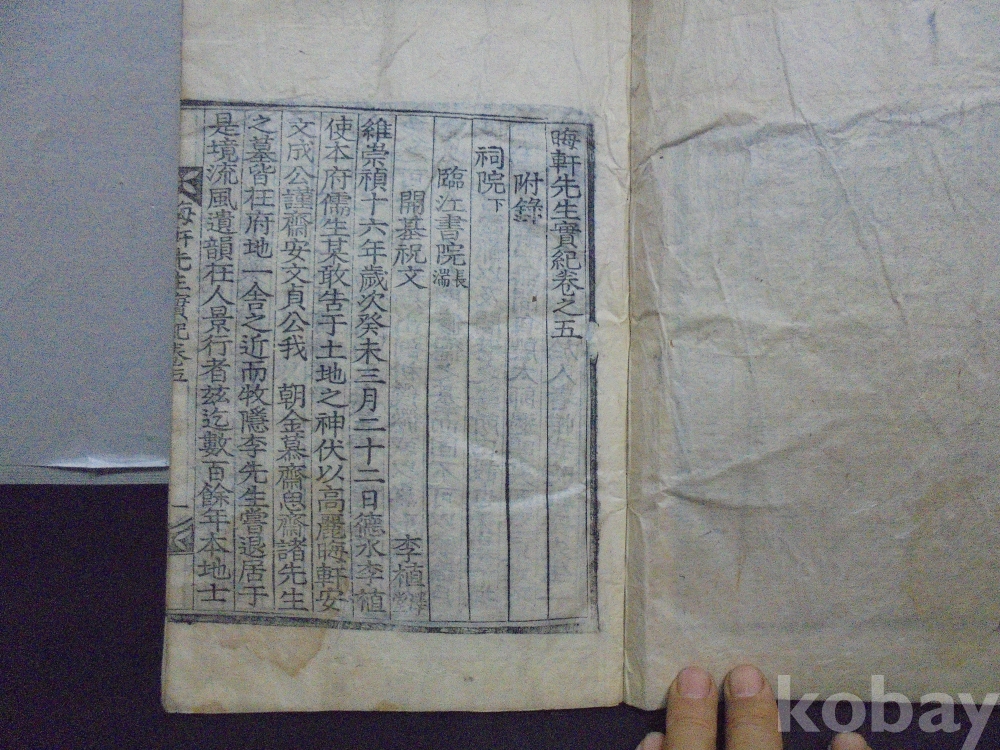 晦軒先生實紀卷之五
附錄
祠院下
臨江書院長湍
開基祝文
李植澤堂
維崇禎十六年歲次癸未三月二十二日德水李植
使本府儒生某敢告于土地之神伏以高麗晦軒安
文成公謹齋安文貞公我 朝金慕齋思齋諸先生
之墓皆在府地一舍之近而牧隱李先生嘗退居于
是境流風遺韻在人景行者玆迄數百餘年本地士
晦軒先生實紀卷五
一
kobay